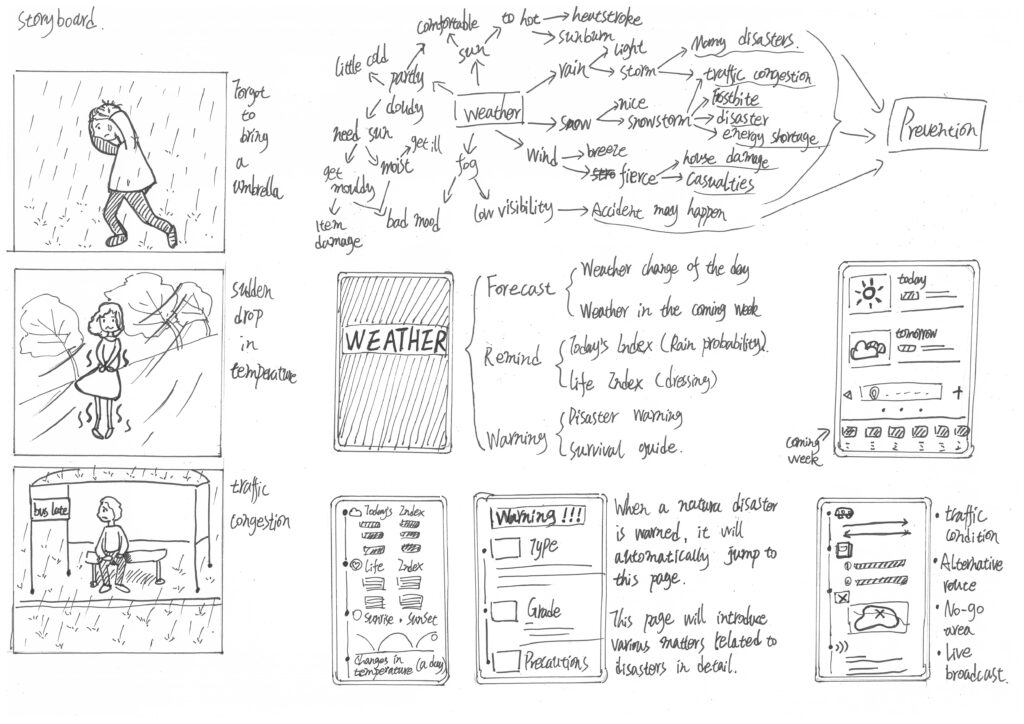 Storyboard.
Forgot
to
bring
a
umbrella
sudden
drop
in
temperature
bus late
traffic
congestion
weather
sun
comfortable
to hot
heatstroke
sunburn
rain
light
storm
Many disasters.
traffic congestion
snow
nice
snowstorm
frostbite
disaster
energy shortage
Wind
breeze
fierce
house damage
Casualties
fog
low visibility
Accident may happen
bad mood
partly
cloudy
little cold
need sun
moist
get ill
get
mouldy
Item
damage
Prevention
WEATHER
Forecast
Weather change of the day
Weather in the coming week
Remind
Today's Index (Rain probability).
Life Index (dressing)
Warning
Disaster Warning
Survival guide.
today
tomorrow
coming
week
Today's Index
Life Index
Sunrise • sunset
Changes in
temperature (a day)
Warning !!!
Type
Grade
Precautions
When a natura disaster
is warned, it will
automatically jump to
this page.
This page will introduce
various matters related to
disastors in detail.
• traffic
condition
• Alternative
route
• No-go
area
• Live
broadcast.